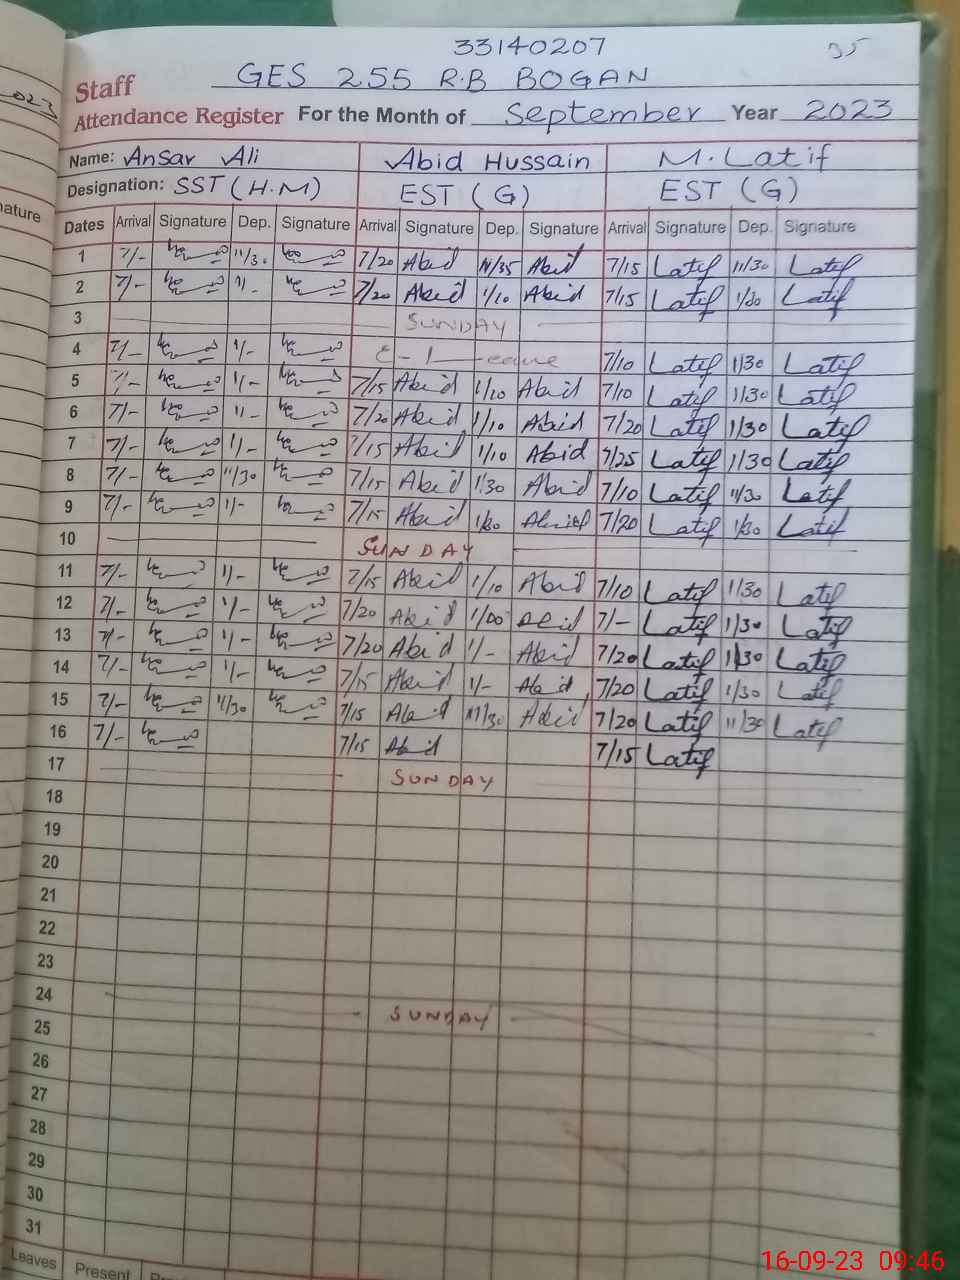 33140207 35
GES 255 R.B BOGAN
Staff
Attendance Register For the Month of September Year 2023
Name: Ansar Ali Abid Hussain M. Latif
Designation: SST (H.M) EST (G) EST (G)
Dates Arrival Signature Dep. Signature Arrival Signature Dep. Signature Arrival Signature Dep. Signature
1 7/- 11/30 7/20 Abid 11/35 Abid 7/15 Latif 11/30 Latif
2 7/- 1/- 7/20 Abid 1/10 Abid 7/15 Latif 1/30 Latif
3 SUNDAY
4 7/- 1/- 7/10 Latif 1/30 Latif
5 7/- 1/- 7/15 Abid 1/10 Abid 7/10 Latif 1/30 Latif
6 7/- 1/- 7/20 Abid 1/10 Abid 7/20 Latif 1/30 Latif
7 7/- 1/- 7/15 Abid 1/10 Abid 7/25 Latif 1/30 Latif
8 7/- 11/30 7/15 Abid 1/30 Abid 7/10 Latif 11/30 Latif
9 7/- 1/- 7/15 Abid 1/30 Abid 7/20 Latif 1/30 Latif
10 SUNDAY
11 7/- 1/- 7/15 Abid 1/10 Abid 7/10 Latif 1/30 Latif
12 7/- 1/- 7/20 Abid 1/00 Abid 7/- Latif 1/30 Latif
13 7/- 1/- 7/20 Abid 1/- Abid 7/20 Latif 1/30 Latif
14 7/- 1/- 7/15 Abid 1/- Abid 7/20 Latif 1/30 Latif
15 7/- 11/30 7/15 Abid 11/30 Abid 7/20 Latif 11/30 Latif
16 7/- 7/15 Abid 7/15 Latif
17 SUNDAY
18
19
20
21
22
23
24 SUNDAY
25
26
27
28
29
30
31
Leaves Present
16-09-23 09:46